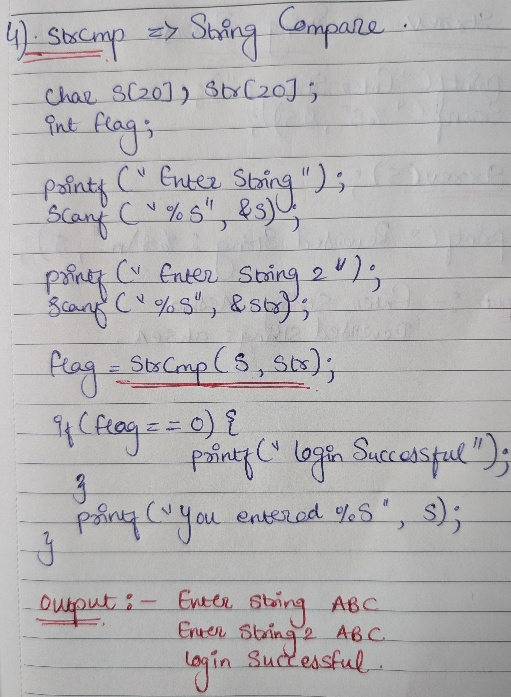 4). Strcmp => String Compare.
char S[20], Str[20];
int flag;
printf ("Enter String");
Scanf ("%s", &S);
printf ("Enter String 2");
Scanf ("%s", &str);
flag = StrCmp (S, Str);
if (flag == 0) {
printf ("login Successful");
}
printf ("You entered %s", s);
}
Output :- Enter String ABC
Enter String 2 ABC
login Successful.